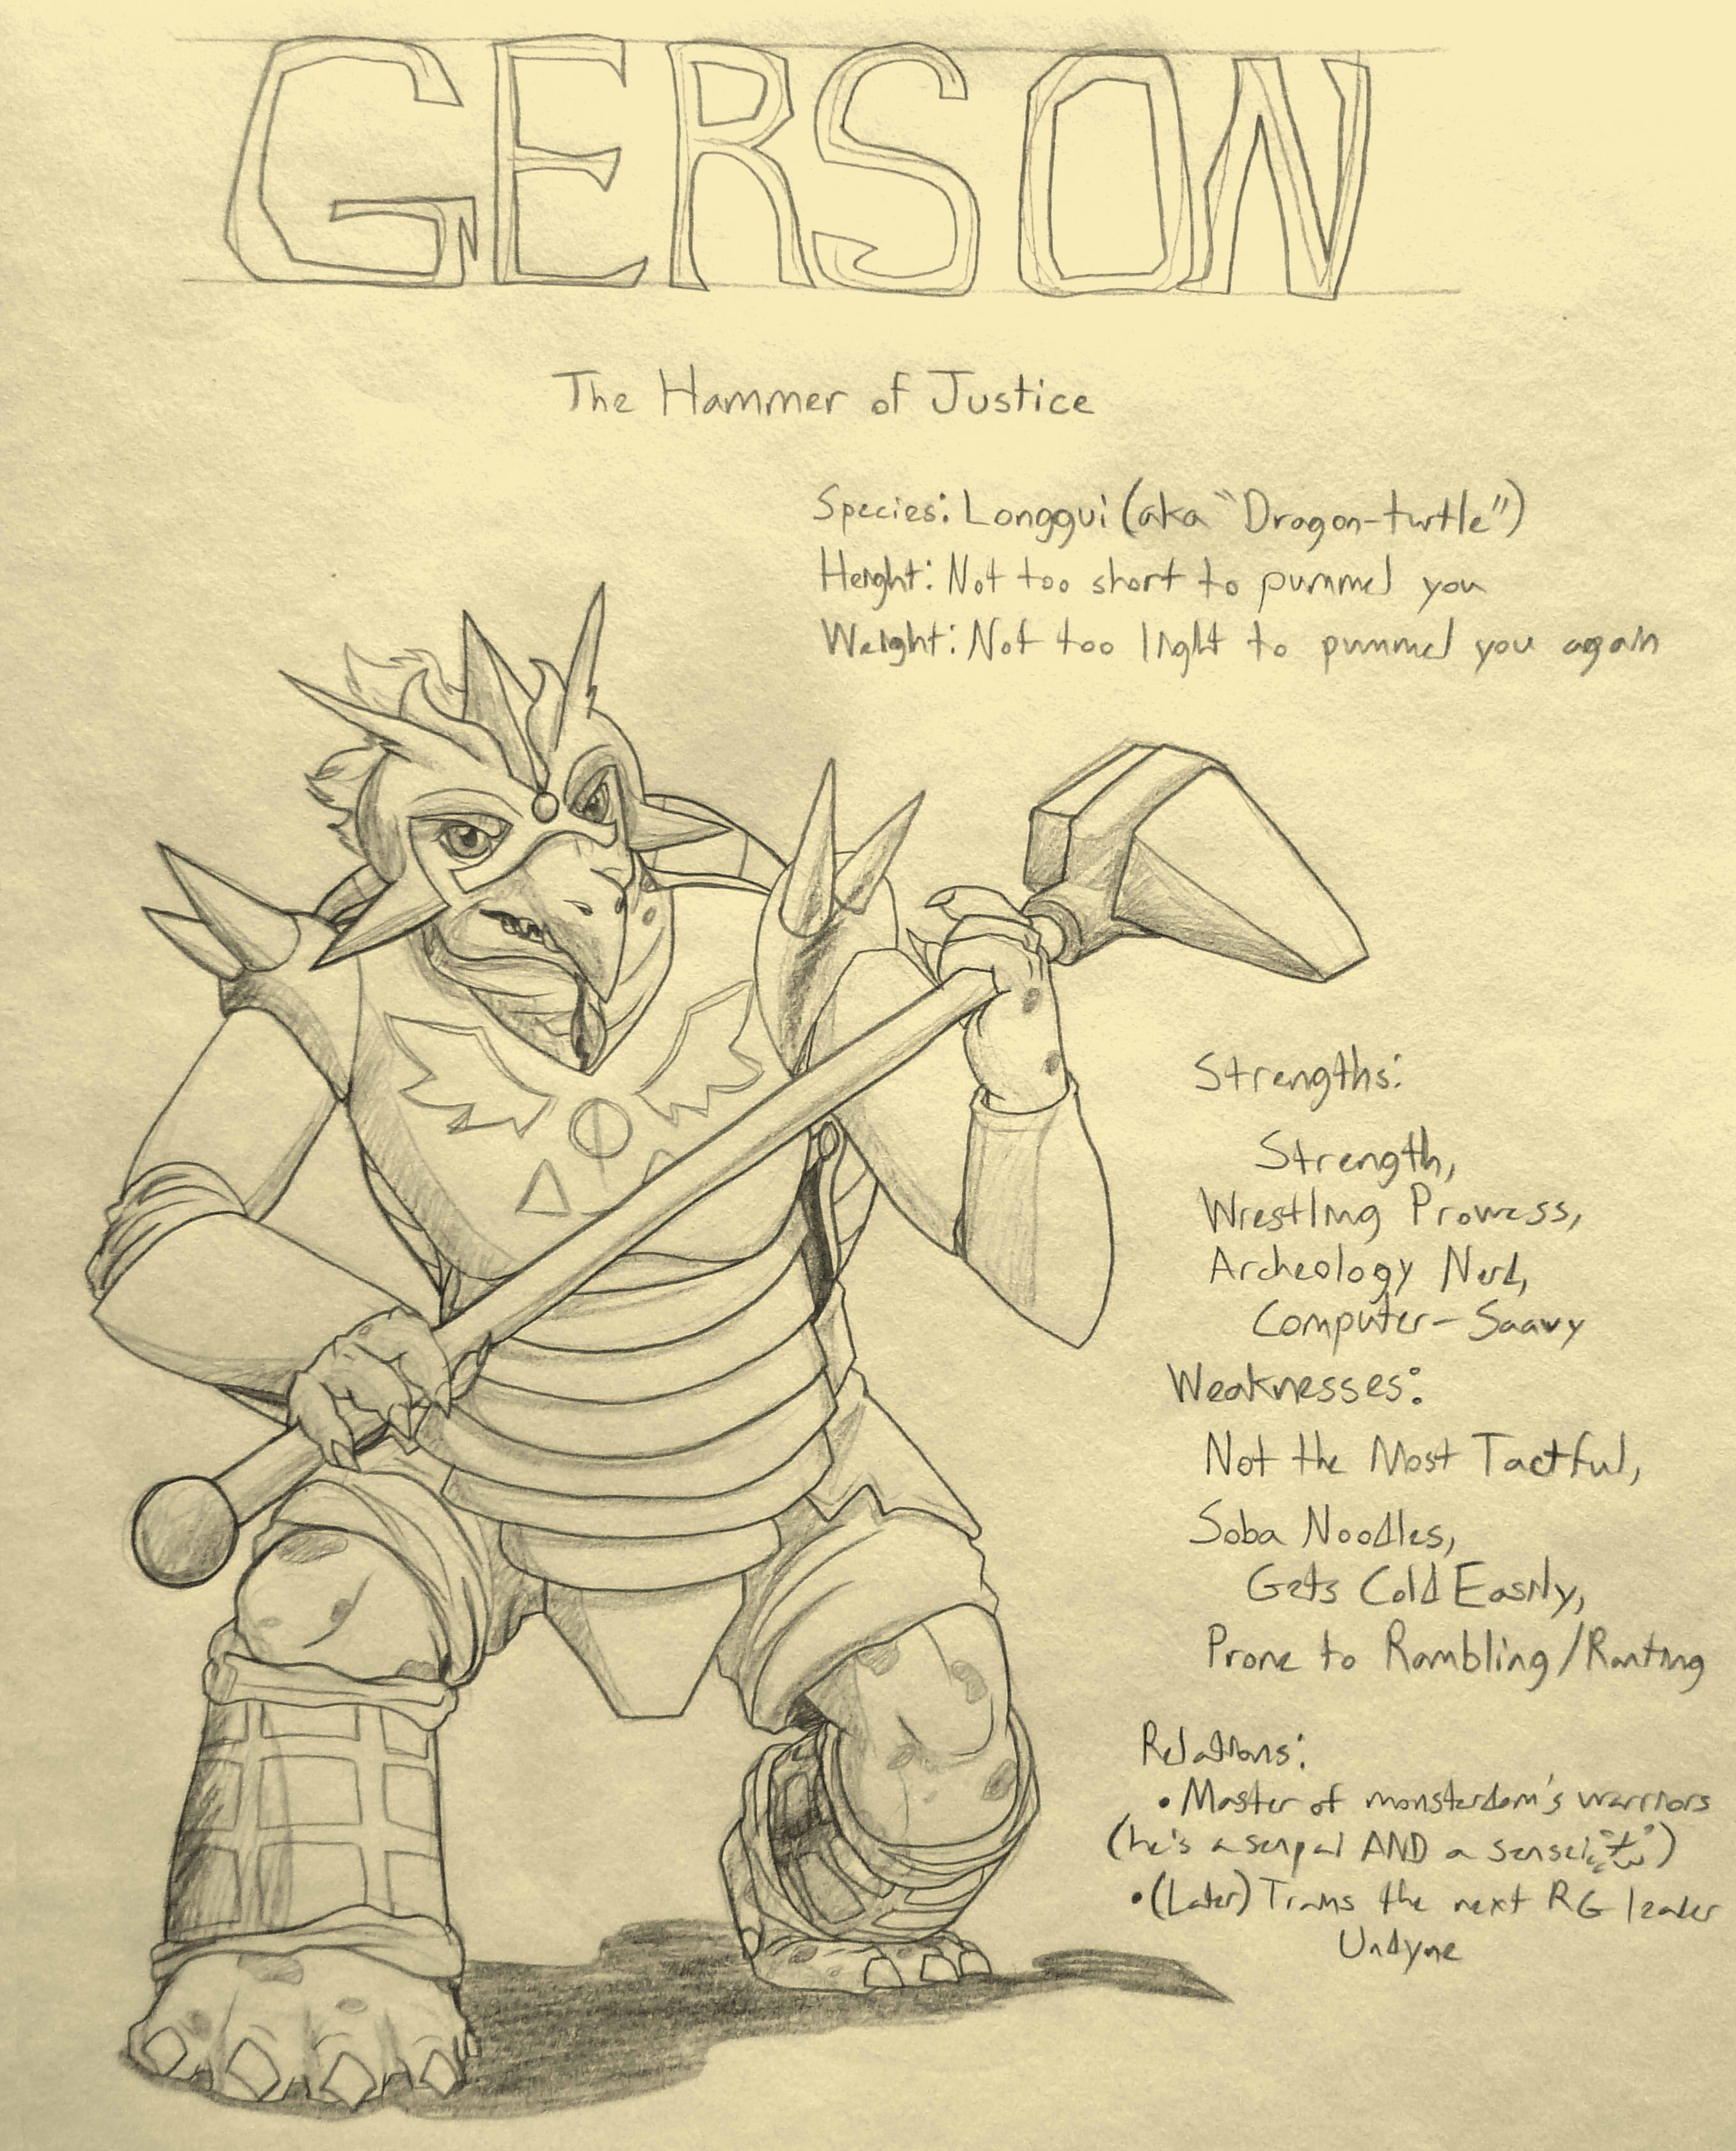 GERSON
The Hammer of Justice
Species: Longgui (aka "Dragon-turtle")
Height: Not too short to pummel you
Weight: Not too light to pummel you again
Strengths:
Strength,
Wrestling Prowess,
Archeology Nerd,
Computer-Saavy
Weaknesses:
Not the Most Tactful,
Soba Noodles,
Gets Cold Easily,
Prone to Rambling/Ranting
Relations:
• Master of monsterdom's warriors
(he's a senpai AND a sensei)
• (Later) Trains the next RG leader
Undyne